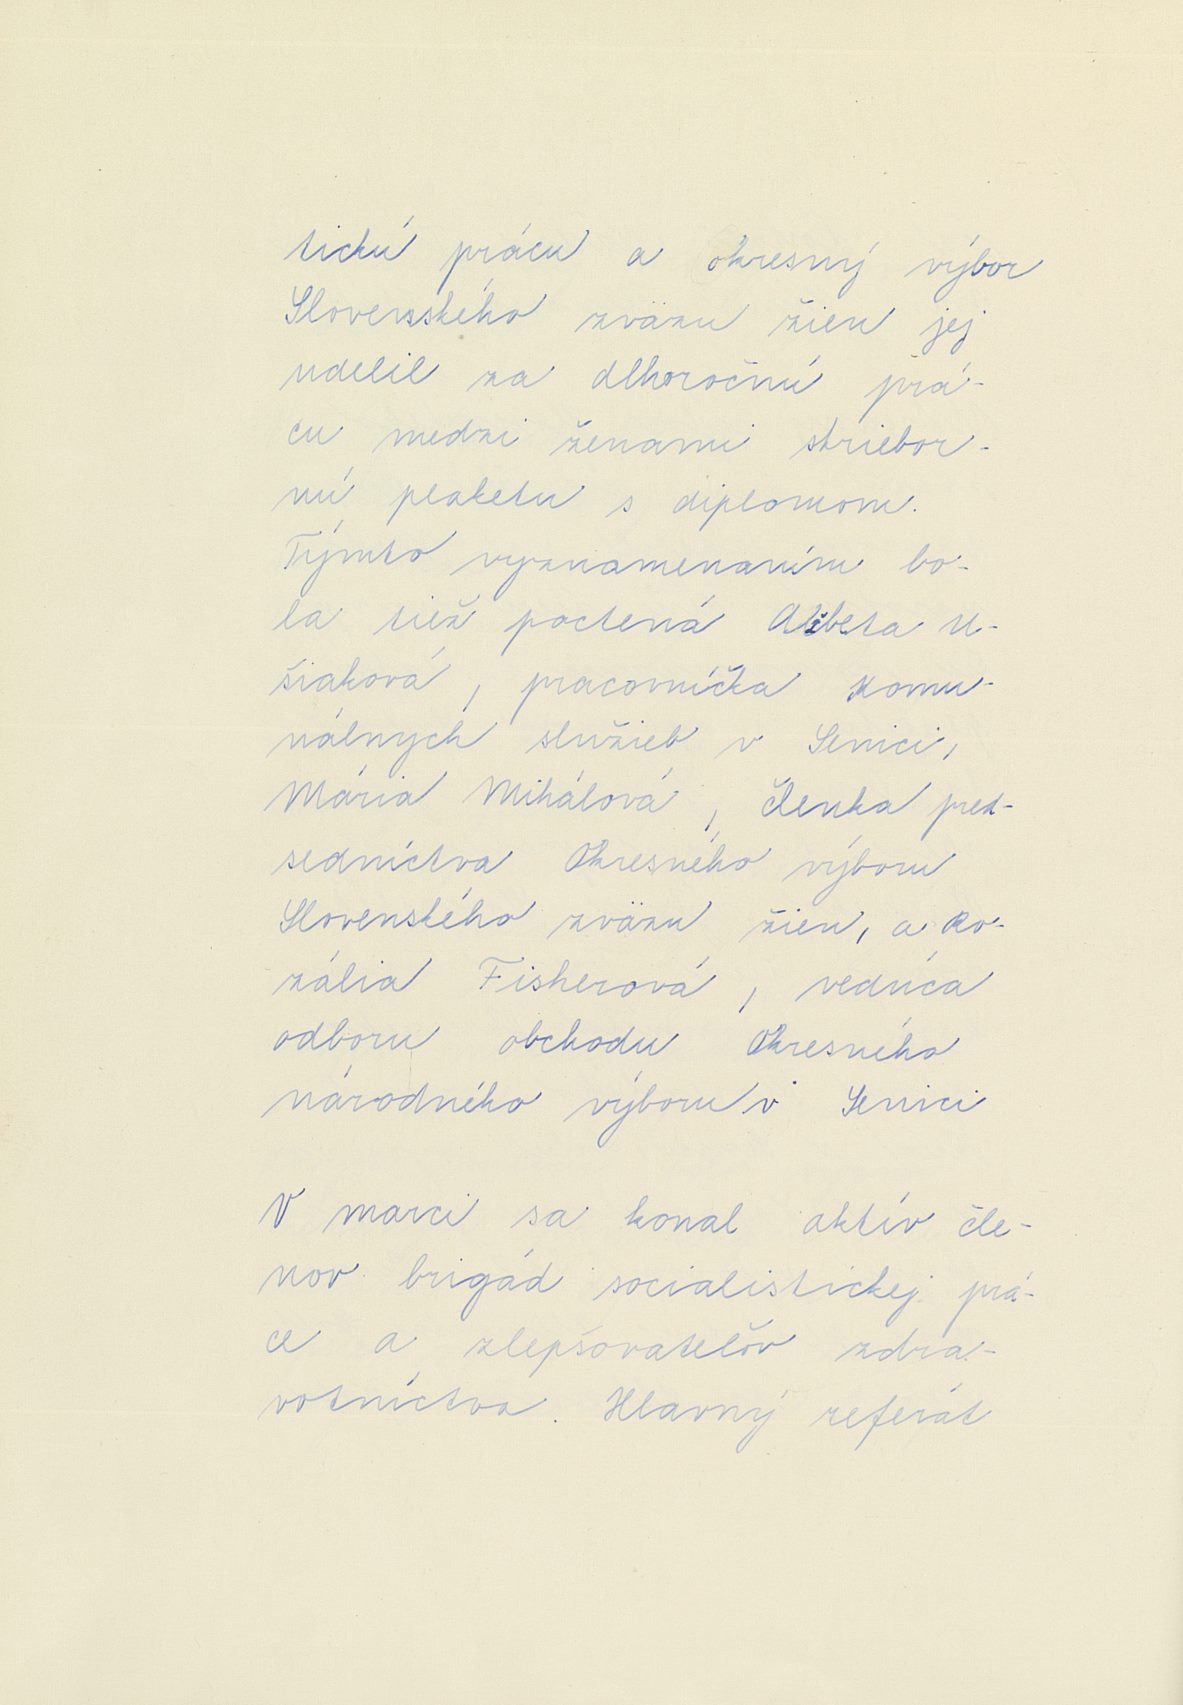 tickú prácu a okresný výbor
Slovenského zväzu žien jej
udelil za dlhoročnú prá-
cu medzi ženami striebor-
nú plaketu s diplomom.
Týmto vyznamenaním bo-
la tiež poctená Alžbeta U-
šiaková, pracovníčka komu-
nálnych služieb v Senici,
Mária Mihálová, členka pred-
sedníctva Okresného výboru
Slovenského zväzu žien, a Ro-
zália Fisherová, vedúca
odboru obchodu Okresného
národného výboru v Senici
V marci sa konal aktív čle-
nov brigád socialistickej prá-
ce a zlepšovateľov zdra-
votníctva. Hlavný referát